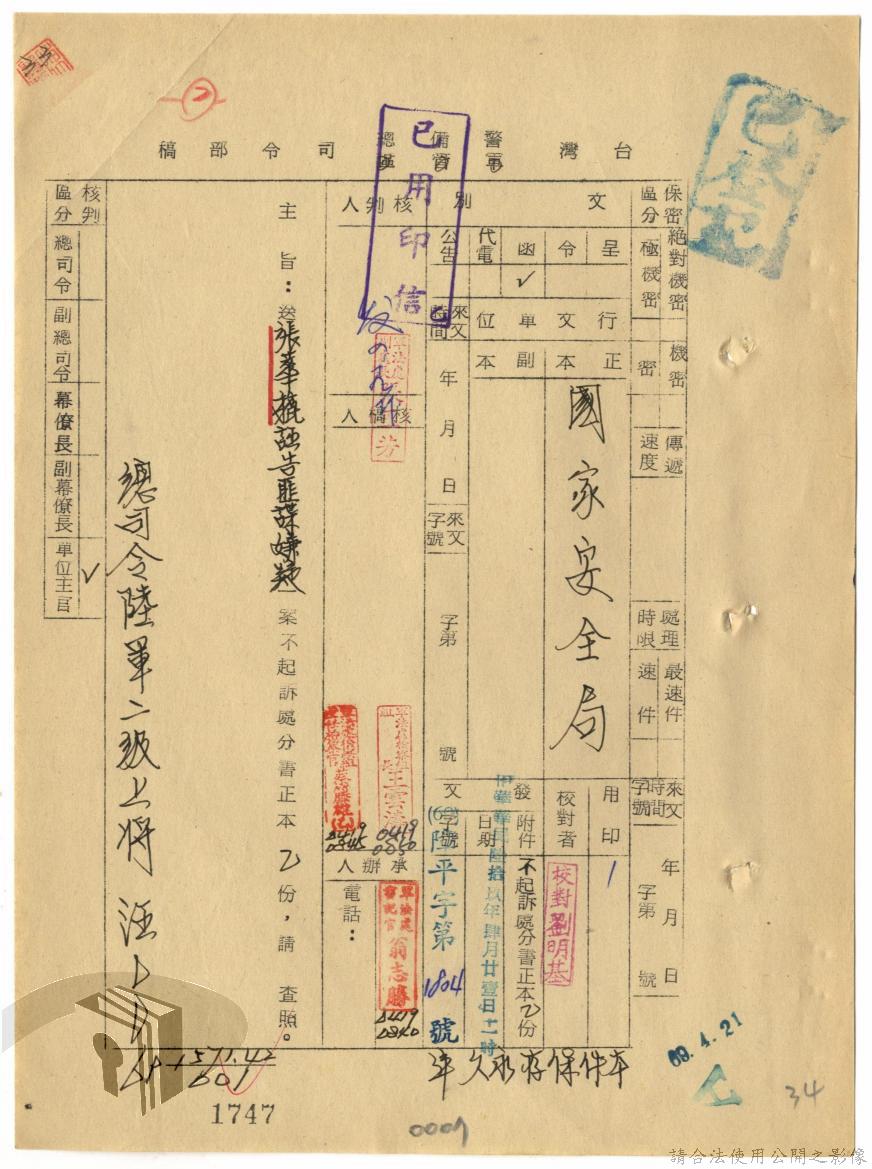 台灣警備總司令部稿
軍管區
保密區分
絕對機密
極機密
機密
密
傳遞速度
處理時限
最速件
速件
來文時間字號
年 月 日
字第 號
文別
呈
令
函
✓
代電
公告
行文單位
正本
副本
國家安全局
用印
1
校對者
校對劉明基
發文
附件
不起訴處分書正本乙份
日期
中華民國陸拾玖年肆月廿壹日十一時
字號
(69)陸平字第1804號
來文時間
年 月 日
來文字號
字第 號
核判人
核稿人
承辦人
王雲濤
0419
0850
0419
0845
軍法處書記官翁志勝
0419
0840
電話：
主旨：送張華摭誣告匪諜嫌疑一案不起訴處分書正本乙份，請 查照。
總司令陸軍二級上將 汪
核判區分
總司令
副總司令
幕僚長
副幕僚長
單位主官
✓
已用印信
本件保存永久年
69.4.21
2
1571.42
601
1747
0007
34
請合法使用公開之影像